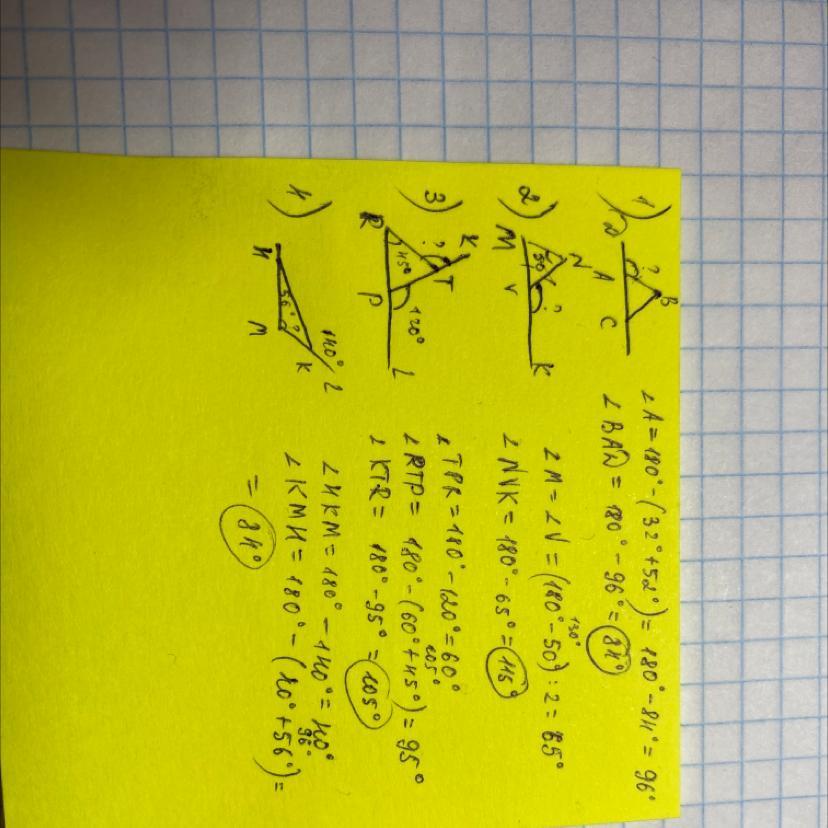 1)
D
A
C
B
?
∠A = 180° - (32° + 52°) = 180° - 84° = 96°
∠BAD = 180° - 96° = 84°
2)
M
N
V
K
50°
?
∠M = ∠V = (180° - 50) : 2 = 65°
130°
∠NVK = 180° - 65° = 115°
3)
R
K
T
P
L
?
45°
120°
∠TPR = 180° - 120° = 60°
∠RTP = 180° - (60° + 45°) = 95°
105°
∠KTR = 180° - 95° = 105°
4)
H
M
K
L
56°
?
140°
∠HKM = 180° - 140° = 40°
∠KMH = 180° - (40° + 56°) =
96°
= 84°